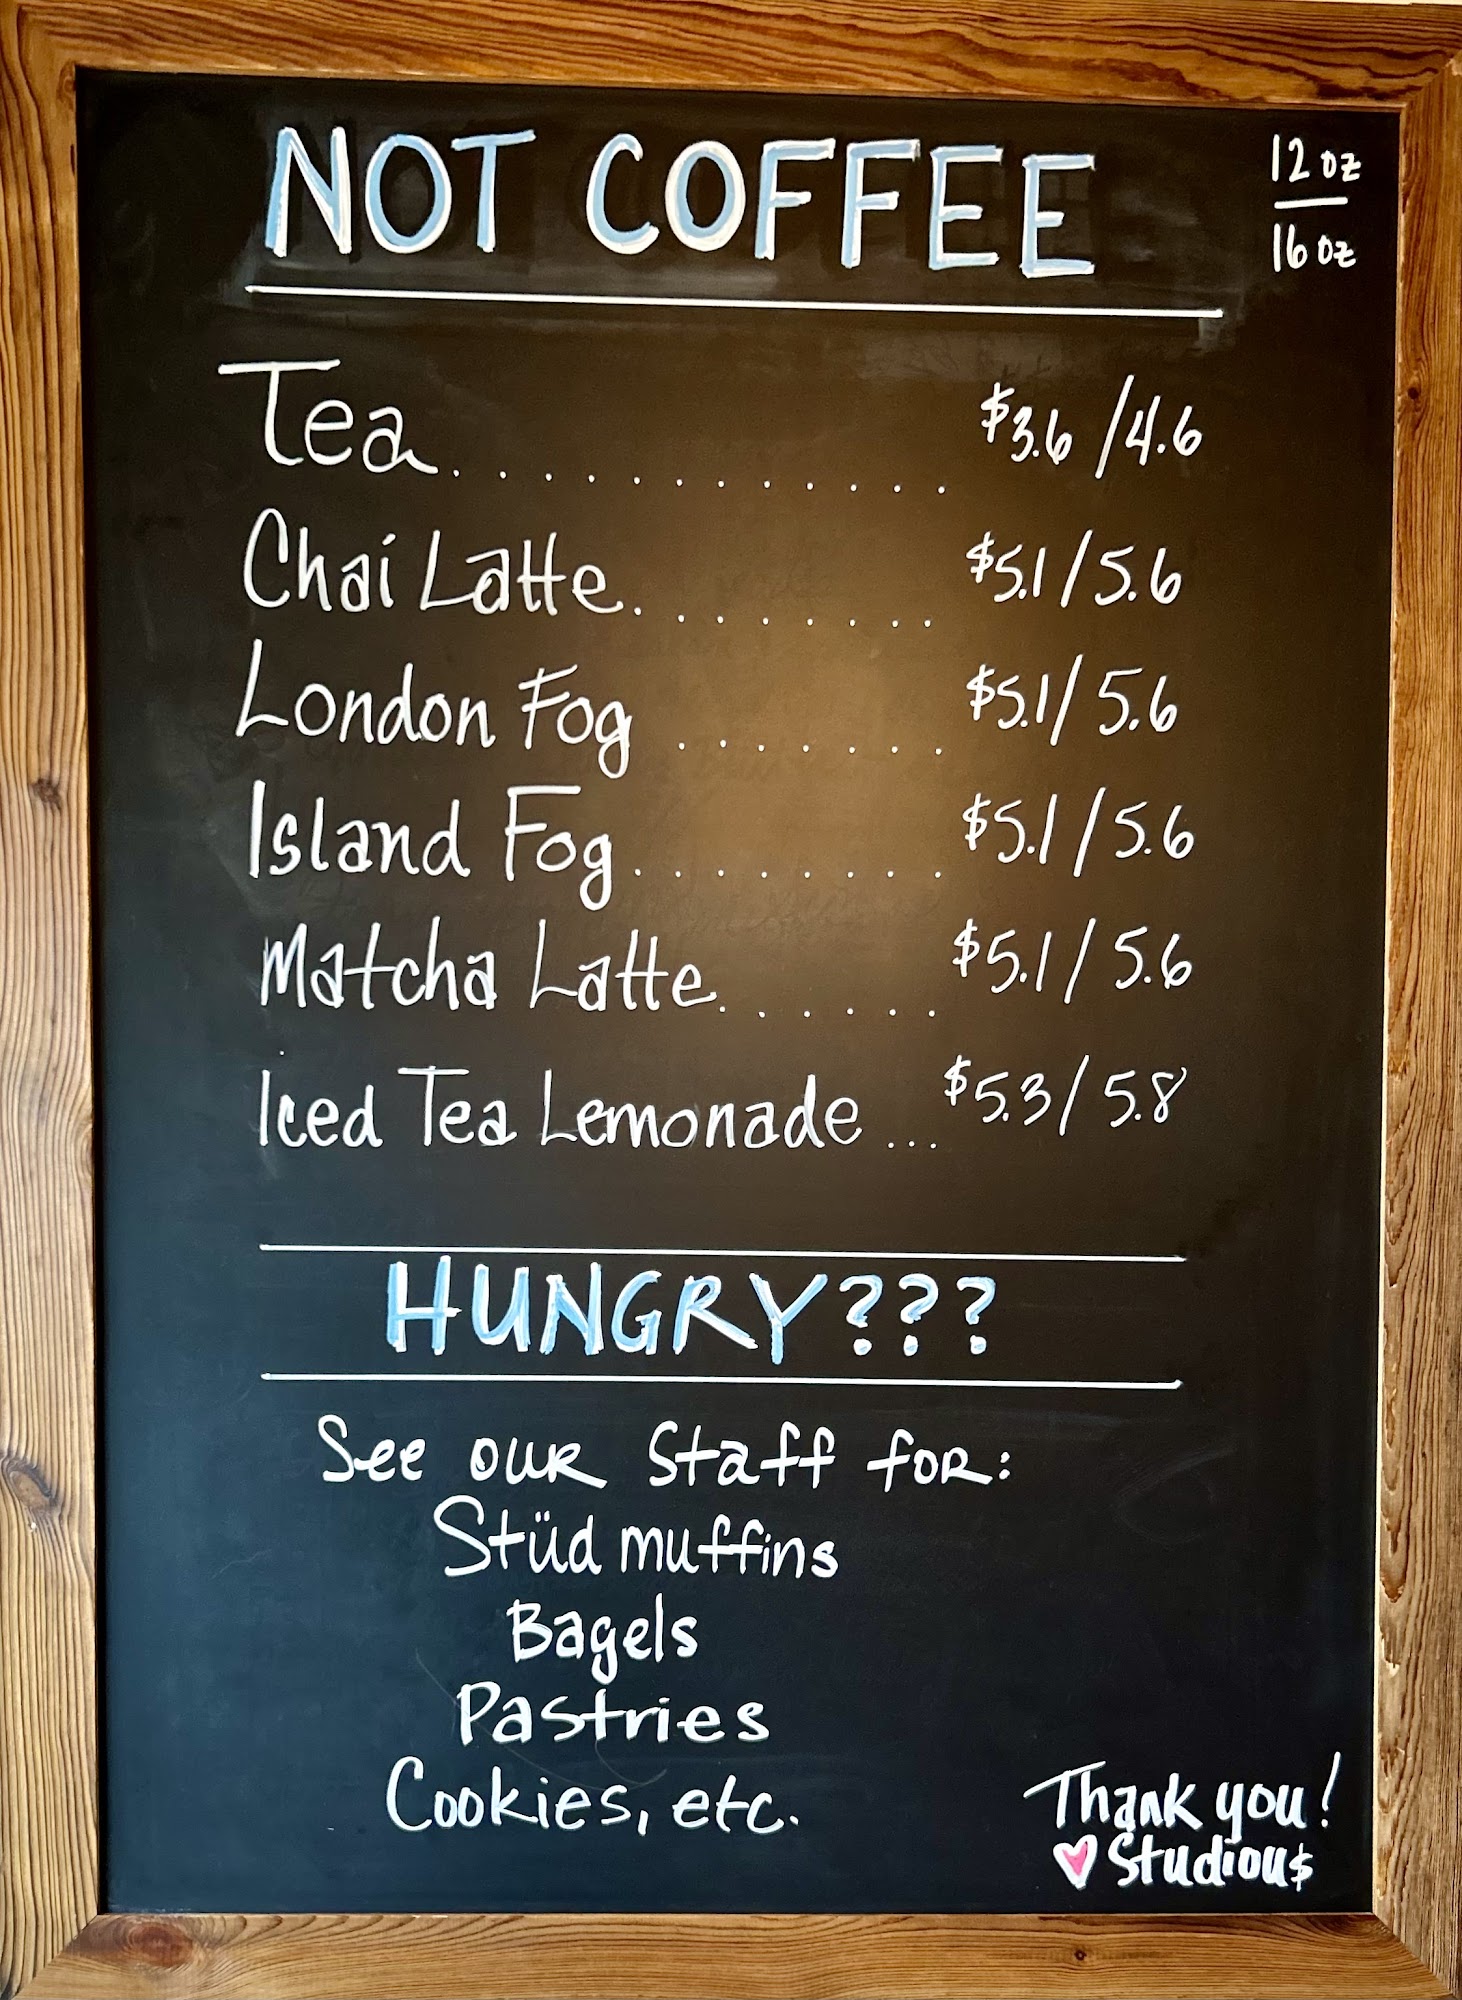 NOT COFFEE
12 oz
16 oz
Tea............. $3.6/4.6
Chai Latte........ $5.1/5.6
London Fog ....... $5.1/5.6
Island Fog........ $5.1/5.6
Matcha Latte...... $5.1/5.6
Iced Tea Lemonade ... $5.3/5.8
HUNGRY???
See our Staff for:
Stüd muffins
Bagels
Pastries
Cookies, etc.
Thank you!
Studiou$